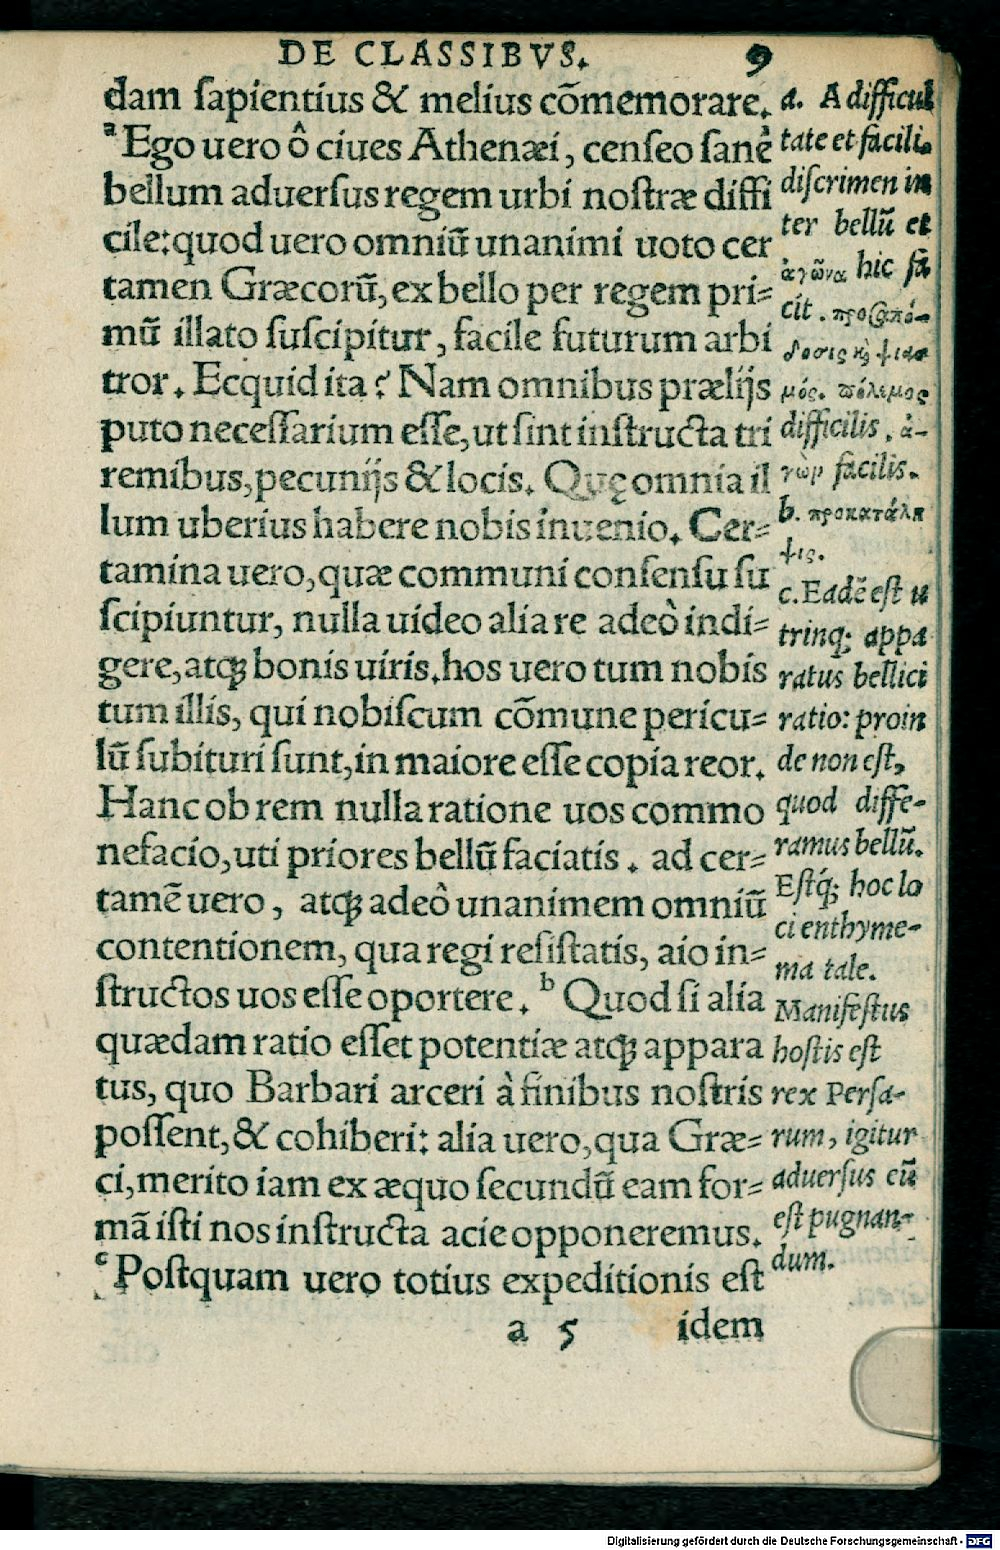 DE CLASSIBVS. 9
dam ſapientius & melius cõmemorare.
ᵃ Ego uero ô ciues Athenæi, cenſeo ſanè
bellum aduerſus regem urbi noſtræ diffi
cile: quod uero omniũ unanimi uoto cer
tamen Græcorũ, ex bello per regem pri⸗
mũ illato ſuſcipitur, facile futurum arbi
tror. Ecquid ita? Nam omnibus prælijs
puto neceſſarium eſſe, ut ſint inſtructa tri
remibus, pecunijs & locis. Quę omnia il
lum uberius habere nobis inuenio. Cer⸗
tamina uero, quæ communi conſenſu ſu
ſcipiuntur, nulla uideo alia re adeò indi⸗
gere, atq; bonis uiris. hos uero tum nobis
tum illis, qui nobiſcum cõmune pericu⸗
lũ ſubituri ſunt, in maiore eſſe copia reor.
Hanc ob rem nulla ratione uos commo
nefacio, uti priores bellũ faciatis. ad cer⸗
tamẽ uero, atq; adeô unanimem omniũ
contentionem, qua regi reſiſtatis, aio in⸗
ſtructos uos eſſe oportere. ᵇ Quod ſi alia
quædam ratio eſſet potentiæ atq; appara
tus, quo Barbari arceri à finibus noſtris
poſſent, & cohiberi: alia uero, qua Græ⸗
ci, merito iam ex æquo ſecundũ eam for⸗
mã iſti nos inſtructa acie opponeremus.
ᶜ Poſtquam uero totius expeditionis eſt
a 5 idem
a. A difficul
tate et facili.
diſcrimen in
ter bellũ et
ἀγῶνα hic fa
cit. προσαπό-
δοσις κỳ ψιασ
μός. πόλεμος
difficilis, ἀ-
γὼν facilis.
b. προκατάλη
ψις.
c. Eadẽ eſt u
trinq; appa
ratus bellici
ratio: proin
de non eſt,
quod diffe-
ramus bellũ.
Eſtq́; hoc lo
ci enthyme-
ma tale.
Manifeſtus
hoſtis eſt
rex Perſa-
rum, igitur
aduerſus eũ
eſt pugnan-
dum.
Digitalisierung gefördert durch die Deutsche Forschungsgemeinschaft - DFG